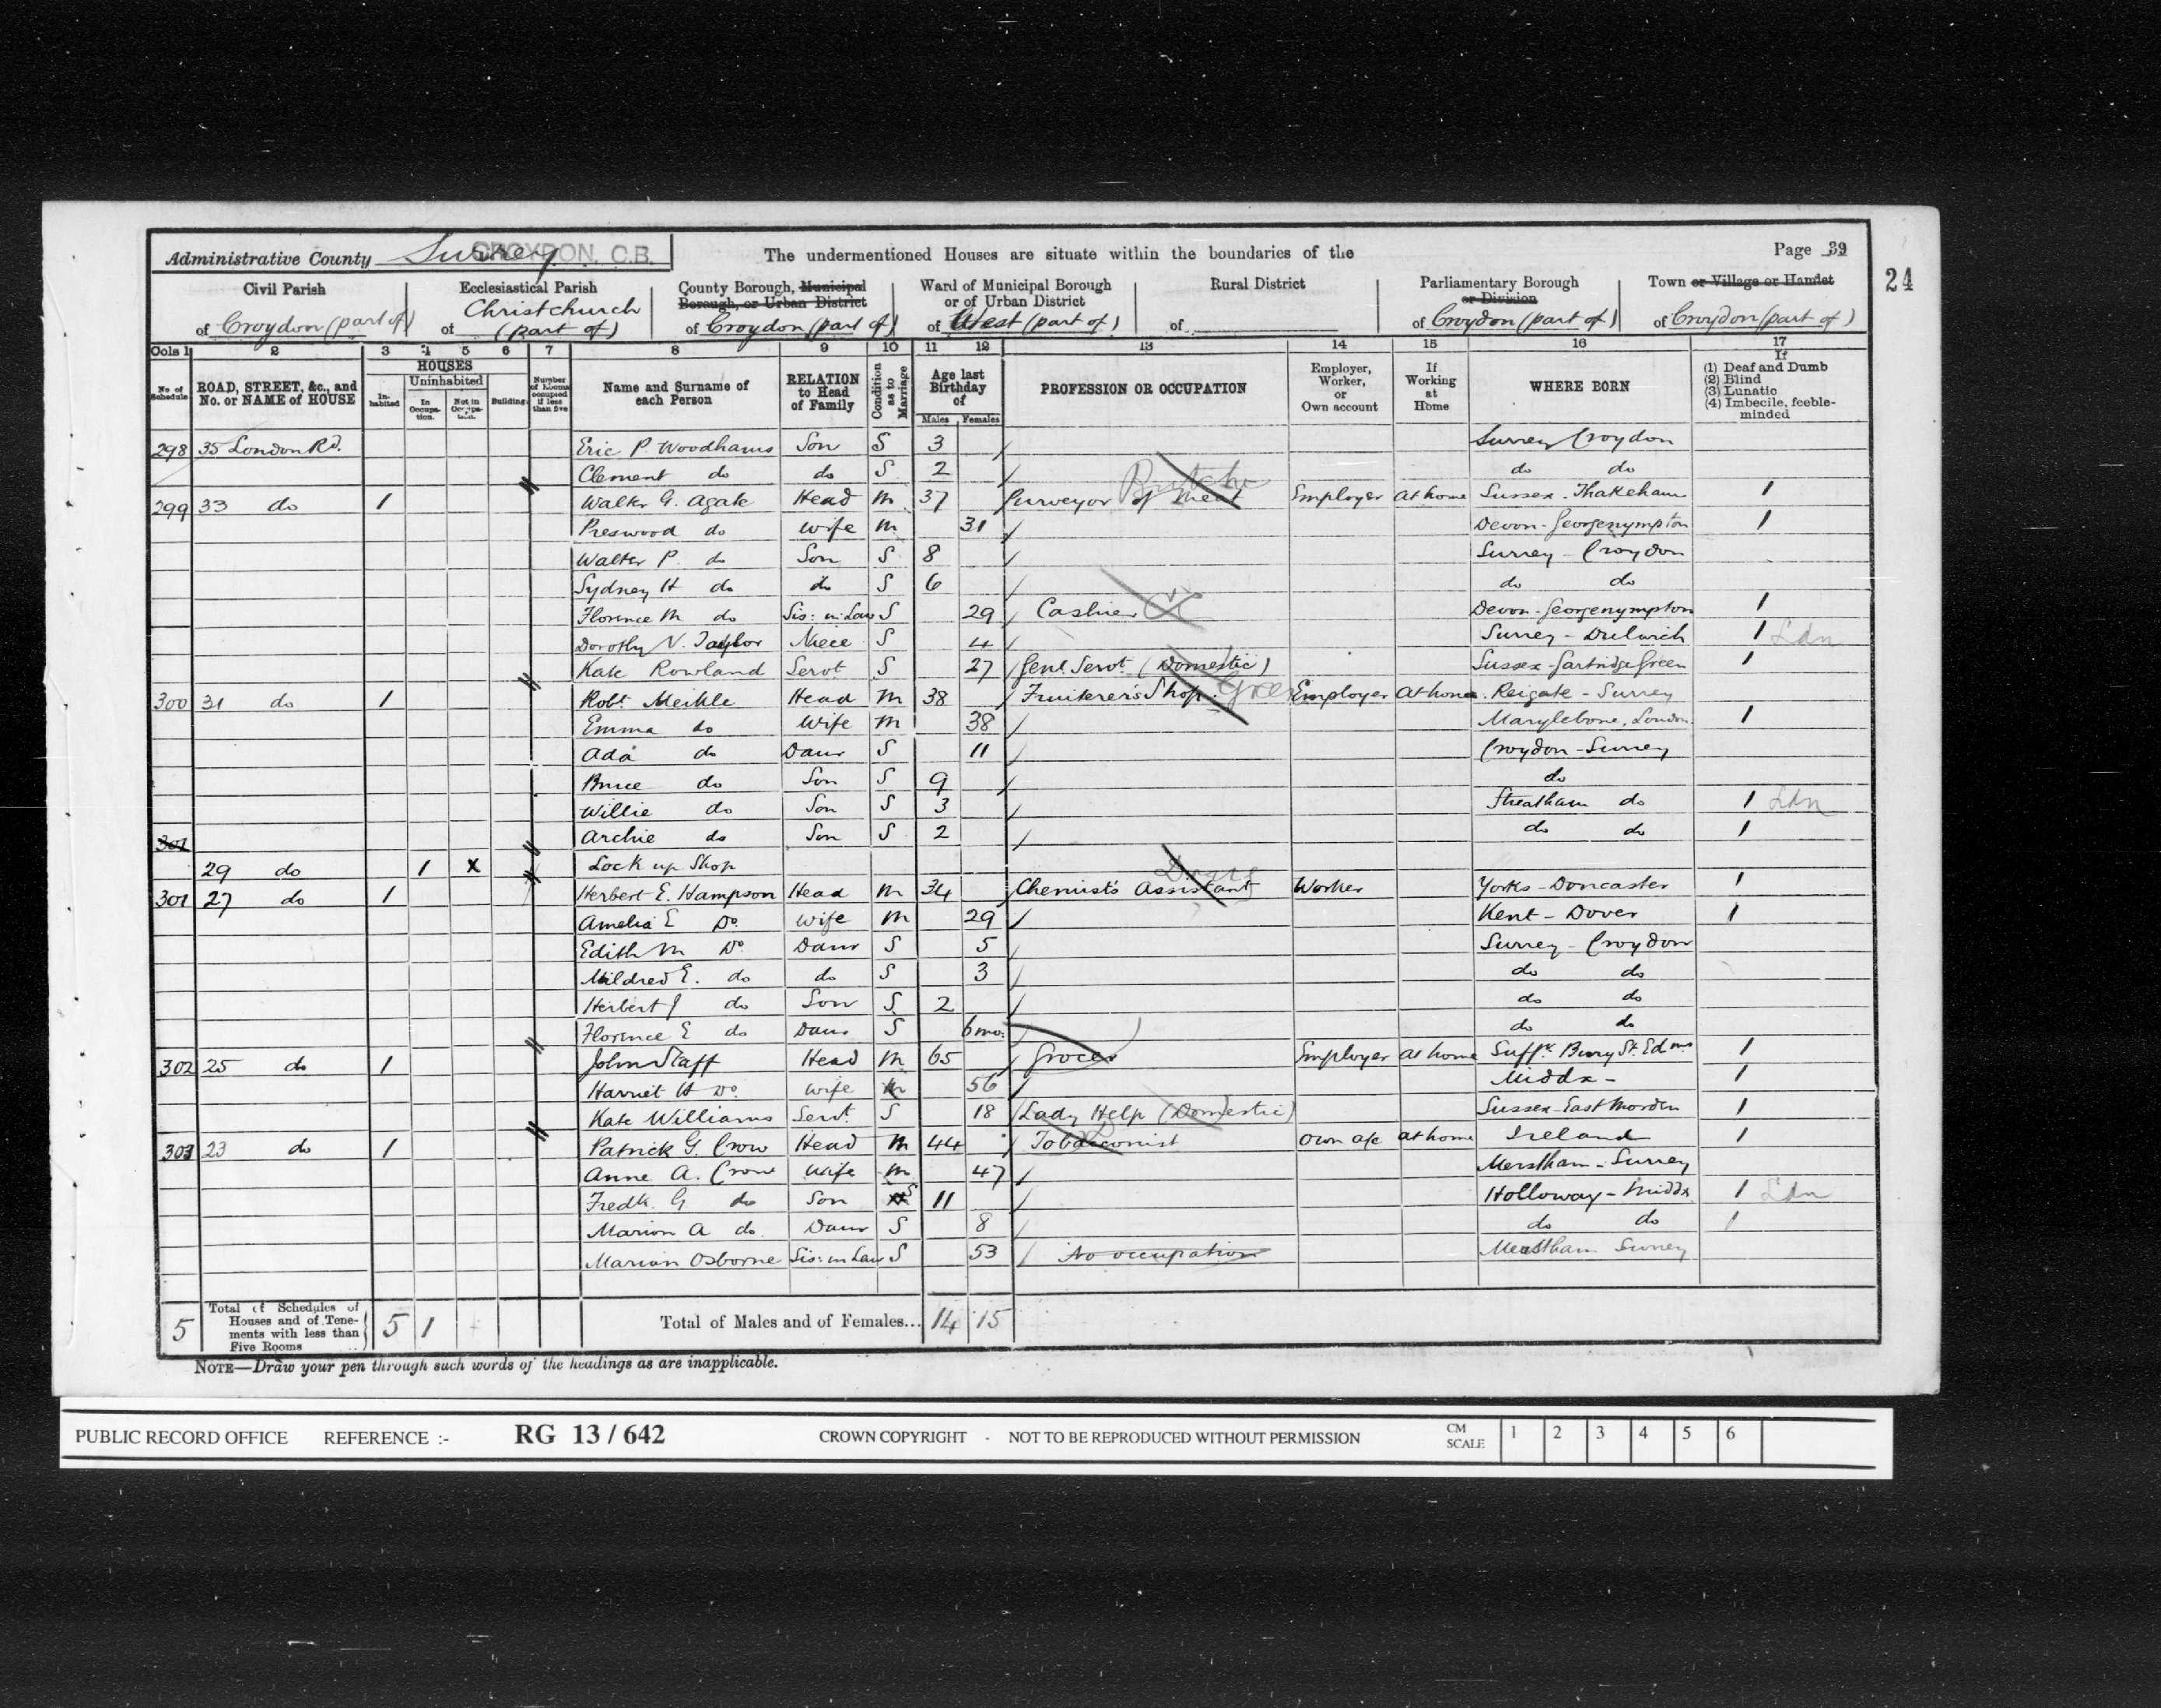 Administrative County Surrey CROYDON, C.B. The undermentioned Houses are situate within the boundaries of the Page 39
24
Civil Parish of Croydon (part of)
Ecclesiastical Parish of Christchurch (part of)
County Borough, Municipal Borough, or Urban District of Croydon (part of)
Ward of Municipal Borough or of Urban District of West (part of)
Rural District of
Parliamentary Borough or Division of Croydon (part of)
Town or Village or Hamlet of Croydon (part of)
Cols 1 2 3 4 5 6 7 8 9 10 11 12 13 14 15 16 17
No. of Schedule
ROAD, STREET, &c., and No. or NAME of HOUSE
HOUSES
In-habited
Uninhabited
In Occupa-tion.
Not in Occupa-tion.
Building
Number of Rooms occupied if less than five
Name and Surname of each Person
RELATION to Head of Family
Condition as to Marriage
Age last Birthday of
Males Females
PROFESSION OR OCCUPATION
Employer, Worker, or Own account
If Working at Home
WHERE BORN
If
(1) Deaf and Dumb
(2) Blind
(3) Lunatic
(4) Imbecile, feeble-minded
298 35 London Rd. Eric P Woodhams Son S 3 Surrey Croydon
Clement do do S 2 do do
299 33 do 1 Walter G. Agate Head M 37 Purveyor of Meat Butcher Employer At home Sussex - Thakeham 1
Preswood do Wife M 31 Devon - Georgenympton 1
Walter P. do Son S 8 Surrey - Croydon
Sydney H do do S 6 do do
Florence M do Sis: in Law S 29 Cashier Devon - Georgenympton 1
Dorothy V. Taylor Niece S 4 Surrey - Dulwich 1 Ldn
Kate Rowland Servt. S 27 Genl. Servt. (Domestic) Sussex - Partridge Green 1
300 31 do 1 Robt. Meikle Head M 38 Fruiterer's Shop. Employer At home Reigate - Surrey
Emma do Wife M 38 Marylebone, London 1
Ada do Daur S 11 Croydon - Surrey
Bruce do Son S 9 do
Willie do Son S 3 Streatham do 1 Ldn
301 Archie do Son S 2 do do 1
29 do 1 x Lock up Shop
301 27 do 1 Herbert E. Hampson Head M 34 Chemist's Assistant Worker Yorks - Doncaster 1
Amelia E Do. Wife M 29 Kent - Dover 1
Edith M Do. Daur S 5 Surrey - Croydon
Mildred E. do do S 3 do do
Herbert J do Son S 2 do do
Florence E do Daur S 6 mo. do do
302 25 do 1 John Staff Head M 65 Grocer Employer At home Suffk. Bury St. Edms 1
Harriet H Do. Wife M 56 Middx - 1
Kate Williams Servt. S 18 Lady Help (Domestic) Sussex East Morden 1
303 23 do 1 Patrick G. Crow Head M 44 Tobacconist Own a/c at home Ireland 1
Anne A. Crow Wife M 47 Merstham - Surrey
Fredk. G do Son S 11 Holloway - Middx 1 Ldn
Marion A do. Daur S 8 do do 1
Marian Osborne Sis: in Law S 53 No occupation Merstham Surrey
5 Total of Schedules of Houses and of Tenements with less than Five Rooms 5 1 Total of Males and of Females... 14 15
NOTE—Draw your pen through such words of the headings as are inapplicable.
PUBLIC RECORD OFFICE REFERENCE :- RG 13 / 642 CROWN COPYRIGHT - NOT TO BE REPRODUCED WITHOUT PERMISSION CM SCALE 1 2 3 4 5 6